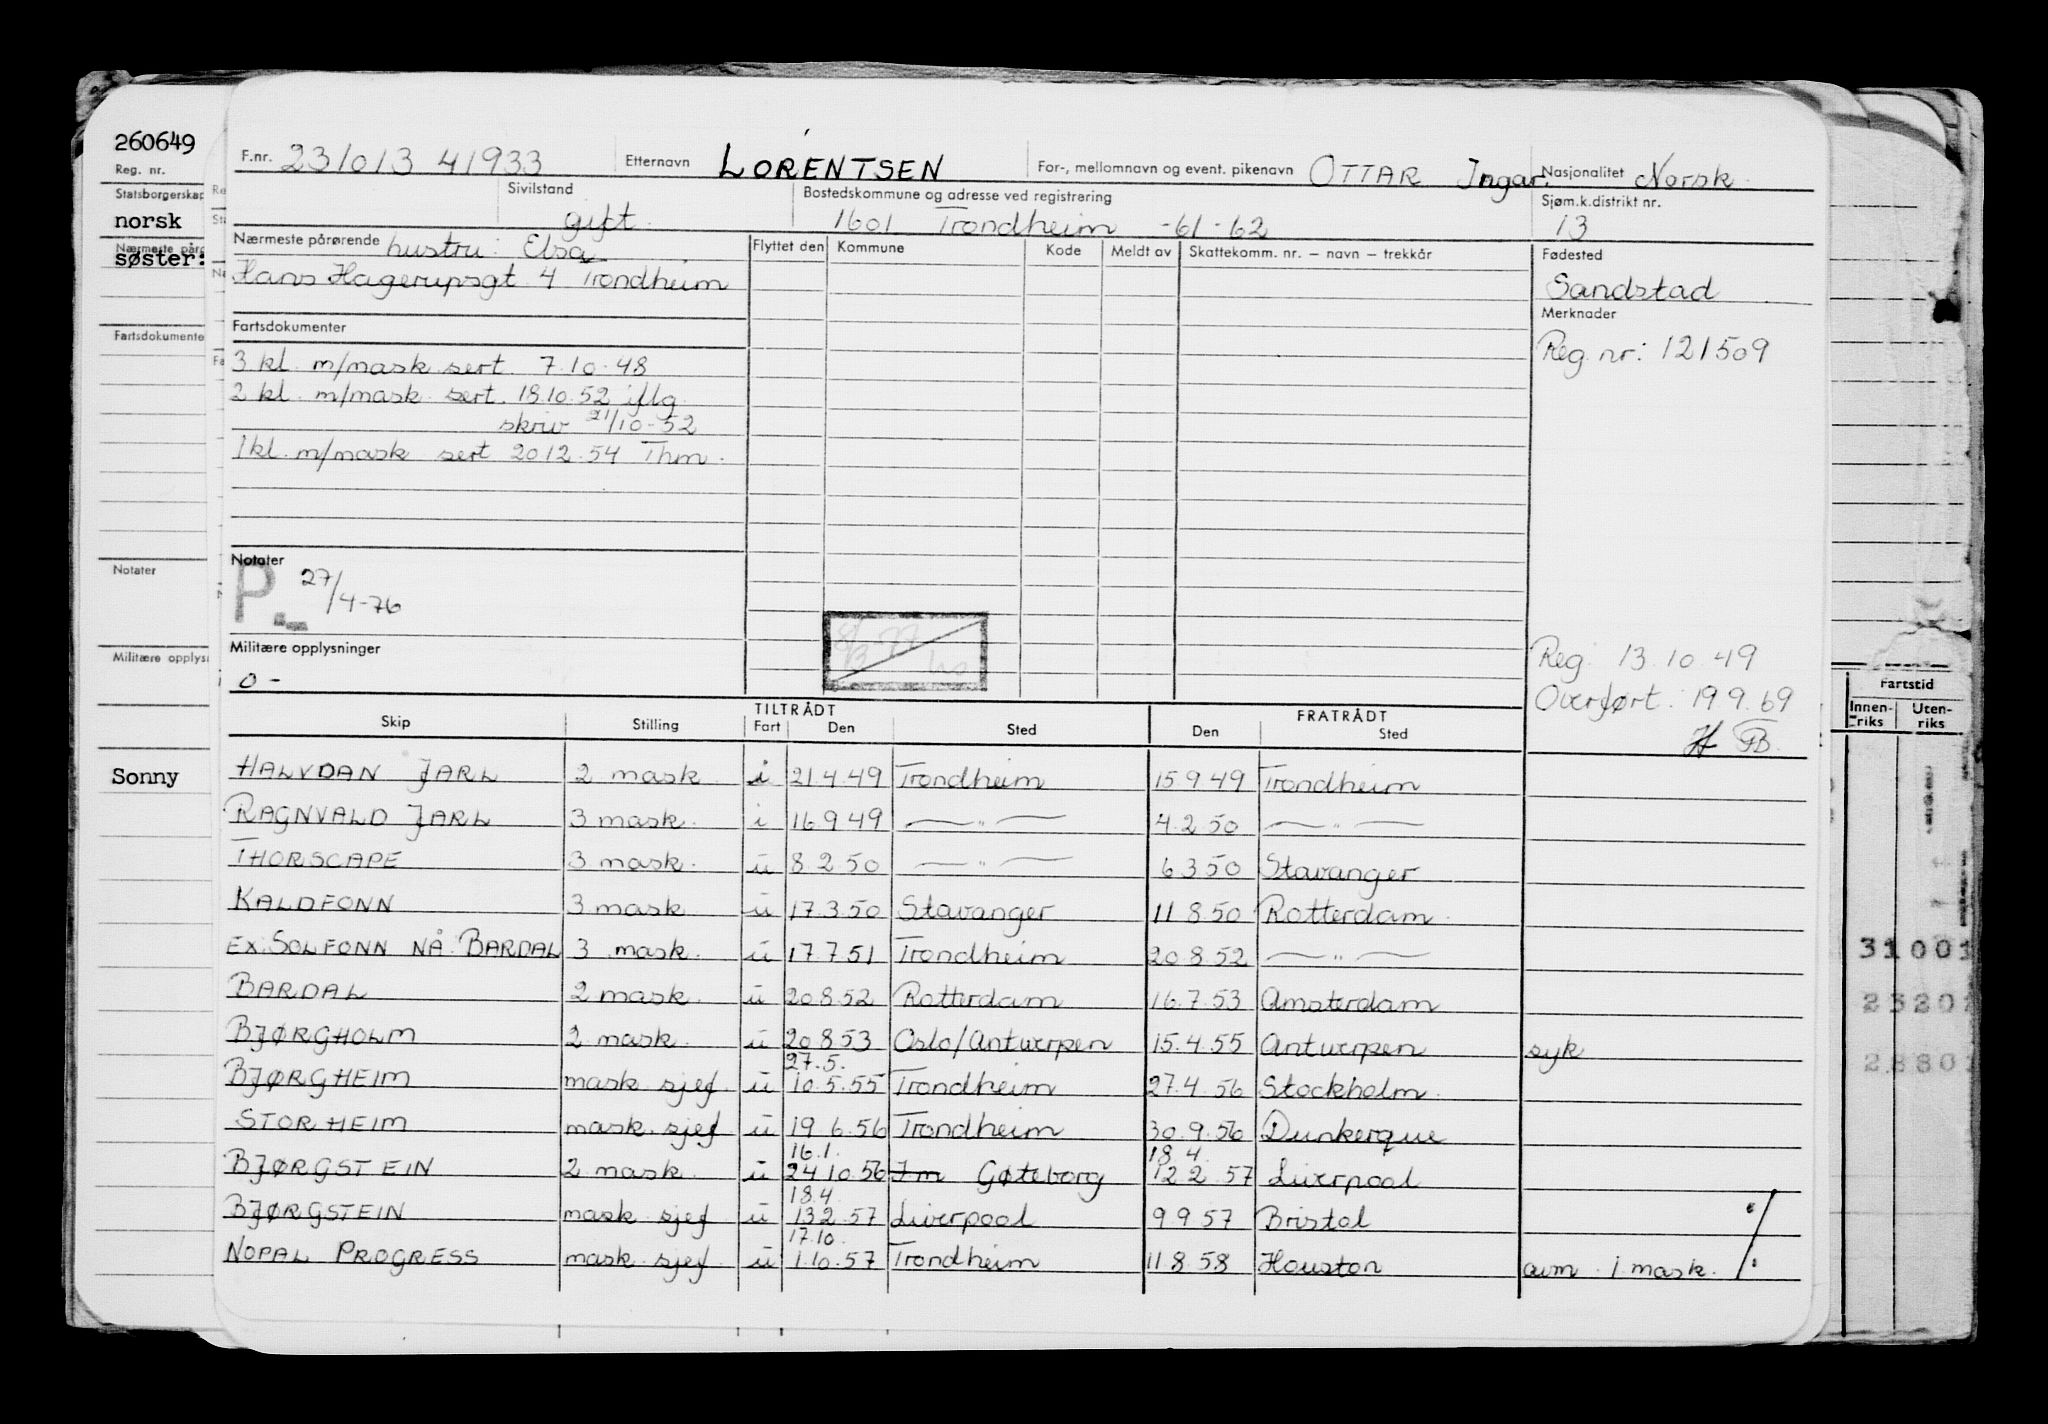 260649
Reg. nr.
Statsborgerskap
norsk
Nærmeste pårø
søster:
Fartsdokumente
Notater
Militære opplysn
Sonny
F.nr. 231013 41933 Etternavn LORENTSEN For-, mellomnavn og event. pikenavn OTTAR Ingar. Nasjonalitet Norsk
Sivilstand gift. Bostedskommune og adresse ved registrering 1601 Trondheim -61-62 Sjøm.k.distrikt nr. 13
Nærmeste pårørende hustru: Elsa Flyttet den Kommune Kode Meldt av Skattekomm. nr. – navn – trekkår Fødested
Hans Hagerupsgt. 4 Trondheim Sandstad
Fartsdokumenter Merknader
3 kl. m/mask sert. 7.10.48 Reg. nr: 121509
2 kl. m/mask sert. 18.10.52 iflg.
skriv 21/10-52
1 kl. m/mask sert 20.12.54 Thm.
Notater
P. 27/4-76
Militære opplysninger
0 -
Reg. 13.10.49
Overført: 19.9.69
TILTRÅDT FRATRÅDT
Skip Stilling Fart Den Sted Den Sted
HALVDAN JARL 2 mask. i 21.4.49 Trondheim 15.9.49 Trondheim
RAGNVALD JARL 3 mask. i 16.9.49 — " — 4.2.50 — " —
THORSCAPE 3 mask. u 8.2.50 — " — 6.3.50 Stavanger
KALDFONN 3 mask u 17.3.50 Stavanger 11.8.50 Rotterdam.
EX. SOLFONN NÅ BARDAL 3 mask. u 17.7.51 Trondheim 20.8.52 — " —
BARDAL 2 mask. u 20.8.52 Rotterdam 16.7.53 Amsterdam
BJØRGHOLM 2 mask. u 20.8.53 Oslo/Antwerpen 15.4.55 Antwerpen syk
27.5.
BJØRGHEIM mask.sjef. u 10.5.55 Trondheim 27.4.56 Stockholm.
STORHEIM mask.sjef u 19.6.56 Trondheim 30.9.56 Dunkerque
16.1. 18.4.
BJØRGSTEIN 2 mask. u 24.10.56 Im Gøteborg 12.2.57 Liverpool
18.4.
BJØRGSTEIN mask.sjef u 13.2.57 Liverpool 9.9.57 Bristol
17.10.
NOPAL PROGRESS mask.sjef u 1.10.57 Trondheim 11.8.58 Houston avm. 1 mask.
Fartstid
Innen-riks Uten-riks
31001
23201
28801